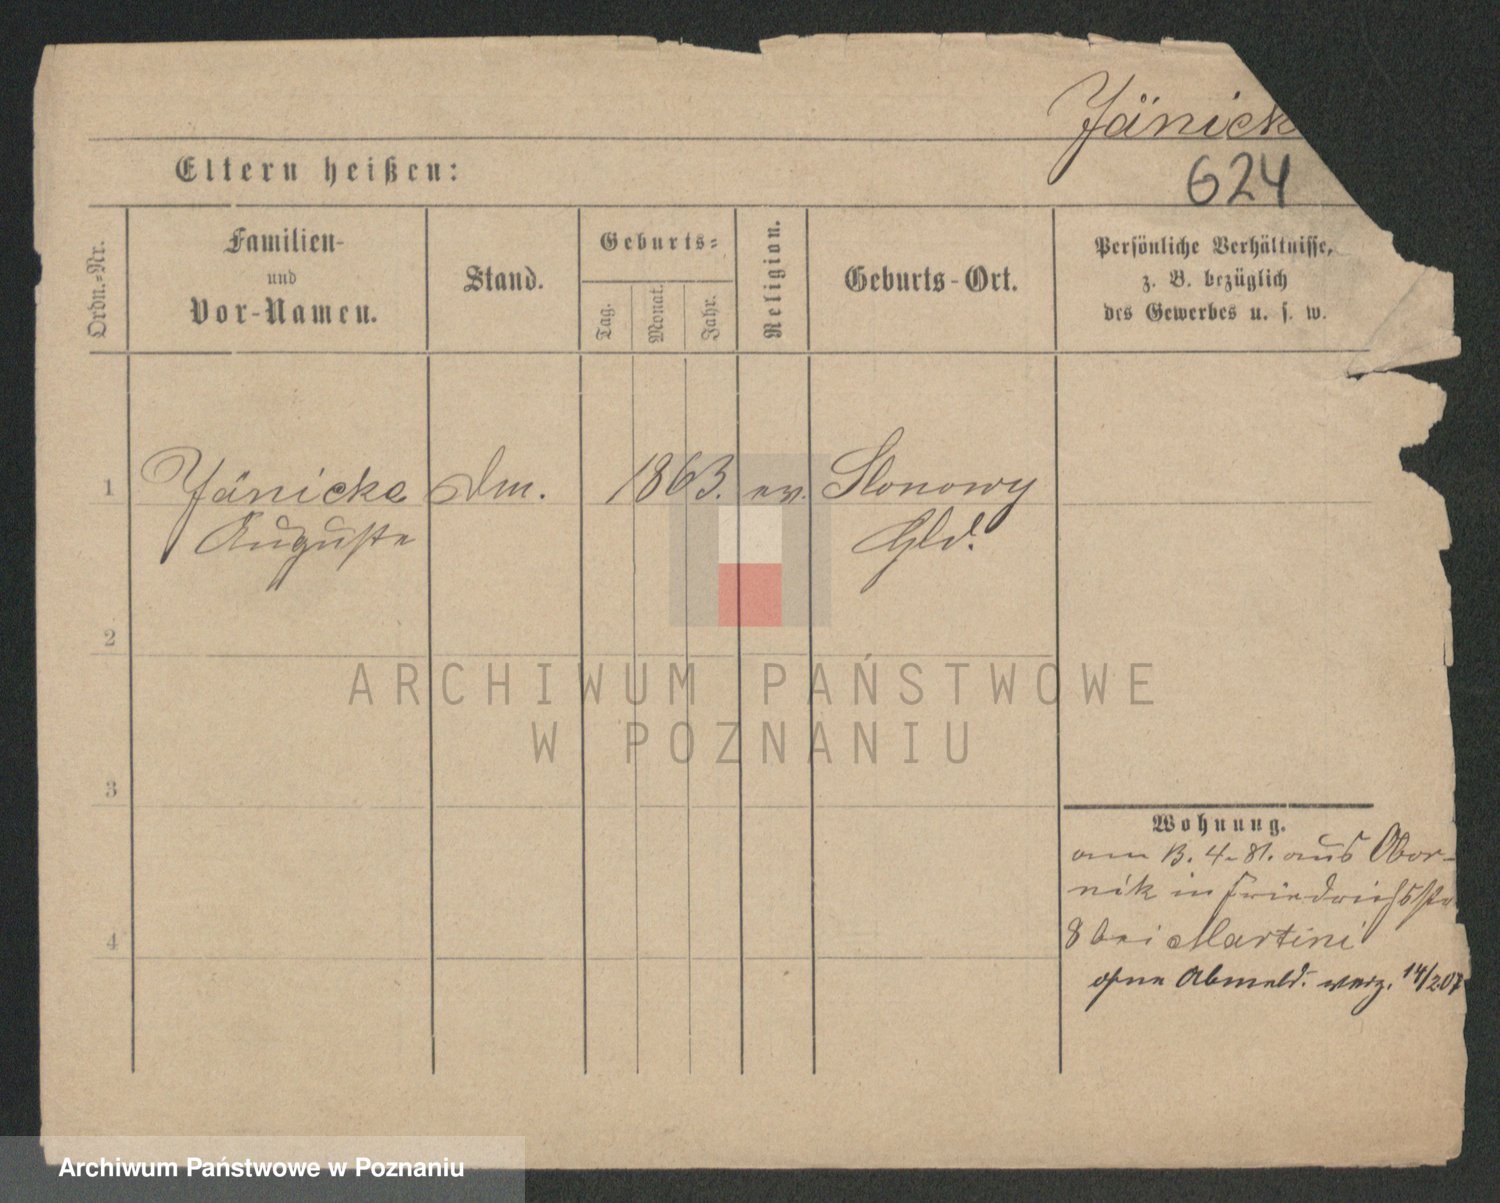 Jänick
624
Eltern heißen:
Ordn.-Nr.
Familien-
und
Vor-Namen.
Stand.
Geburts-
Tag.
Monat.
Jahr.
Religion.
Geburts-Ort.
Persönliche Verhältnisse,
z. B. bezüglich
des Gewerbes u. s. w.
1
Jänicke
Auguste
Dm.
1863.
ev.
Slonowy
2
3
4
Wohnung.
am 13. 4. 81. aus Obor-
nik in Friedrichsstr
8 bei Martini
ohne Abmeld. verz. 14/2.07
ARCHIWUM PAŃSTWOWE
W POZNANIU
Archiwum Państwowe w Poznaniu